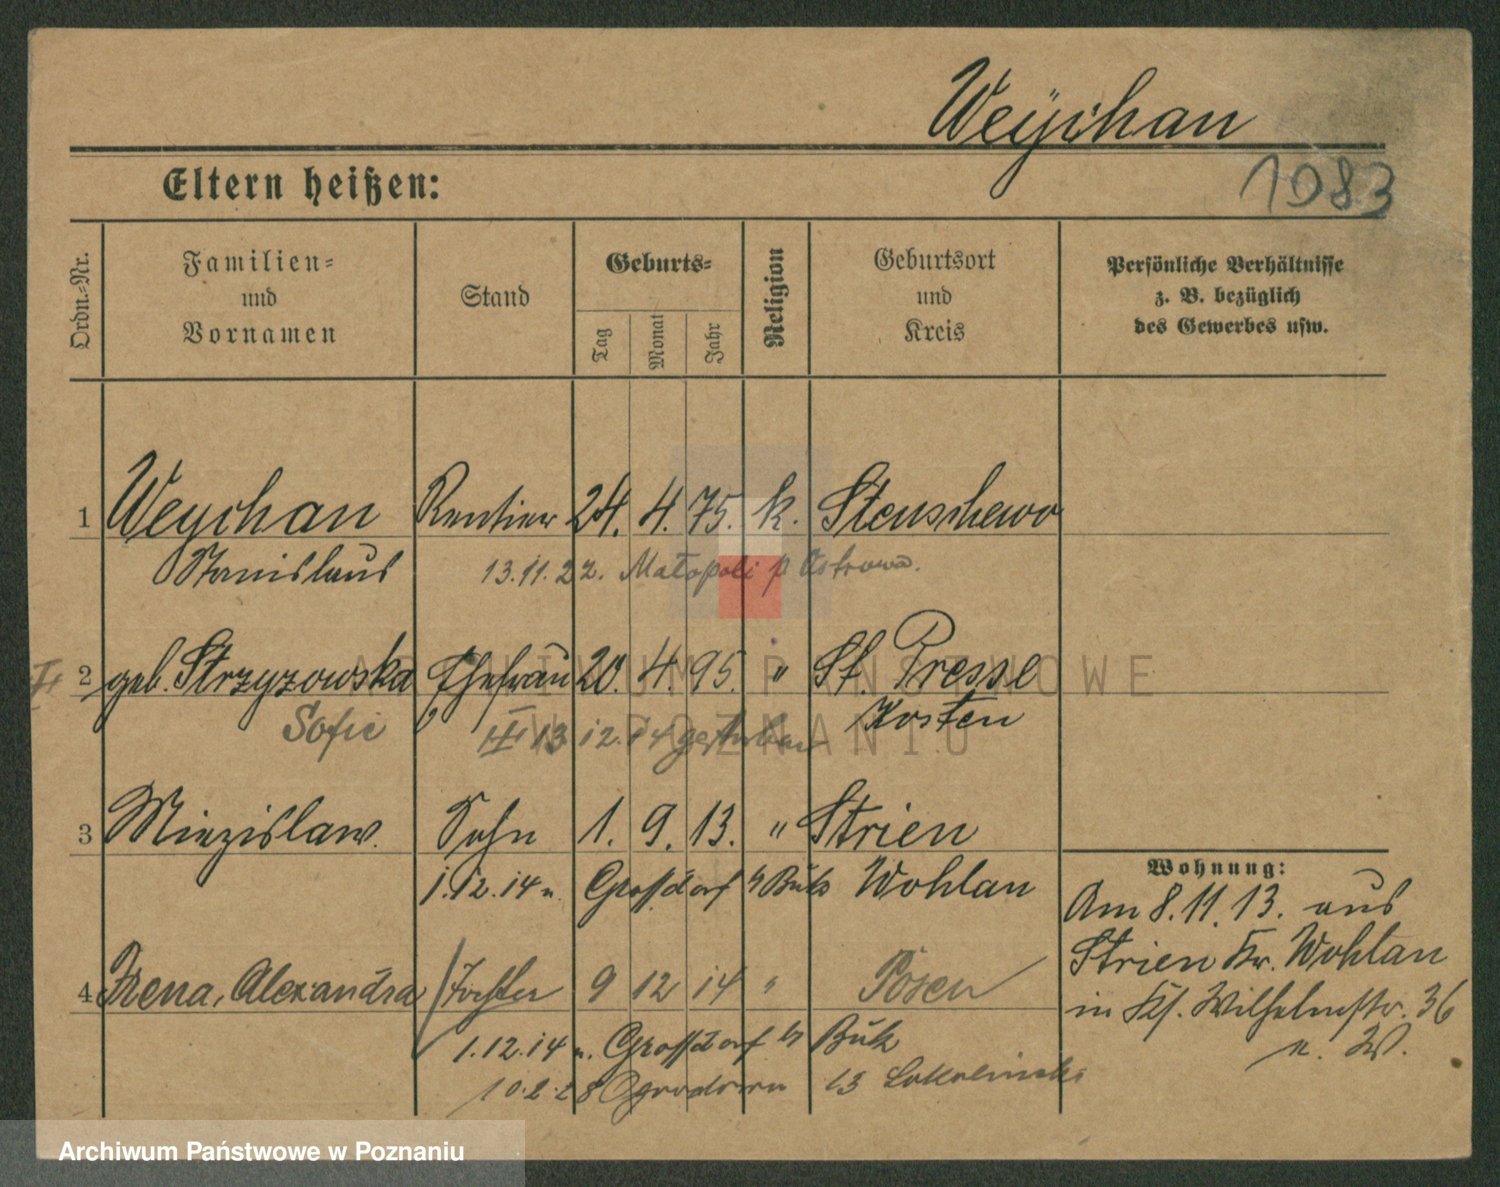 Weÿchan
Eltern heißen:
1983
Ordn.-Nr.
Familien- und Vornamen
Stand
Geburts-
Tag
Monat
Jahr
Religion
Geburtsort und Kreis
Persönliche Verhältnisse z. B. bezüglich des Gewerbes usw.
1 Weychan Rentier 24. 4. 75. k. Stenschewo
Stanislaus 13.11.22. Małopoli p Ostrowa.
2 geb. Strzyzowska Ehefrau 20. 4. 95. " St. Presse
Sofie 13 12. 14 gestorben Kosten
3 Miezislaw. Sohn 1. 9. 13. " Strien
1.12.14 n. Grossdorf b Buk Wohlau
Wohnung:
Am 8.11.13. aus
Strien Kr. Wohlau
in Kl. Wilhelmstr. 36
n. W.
4 Irena, Alexandra Tochter 9 12 14 " Posen
1.12.14 n. Grossdorf b Buk
10.2.28 Ogrodowa 13
ARCHIWUM PAŃSTWOWE
W POZNANIU
Archiwum Państwowe w Poznaniu